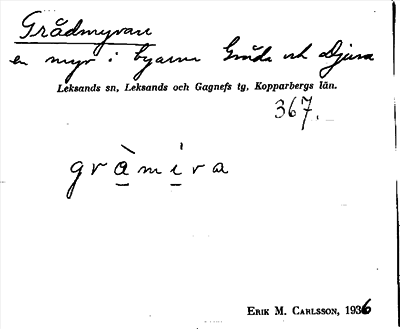 Grådmyran
en myr i byarna Gråda och Djura
Leksands sn, Leksands och Gagnefs tg, Kopparbergs län.
367.
gràmíra
ERIK M. CARLSSON, 1936